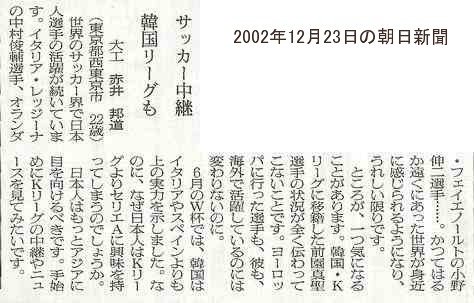 2002年12月23日の朝日新聞
サッカー中継
韓国リーグも
大工　赤井　邦道
（東京都西東京市　22歳）
世界のサッカー界で日本
人選手の活躍が続いていま
す。イタリア・レッジーナ
の中村俊輔選手、オランダ
・フェイエノールトの小野
伸二選手……。かつてはる
か遠くにあった世界が身近
に感じられるようになり、
うれしい限りです。
ところが、一つ気になる
ことがあります。韓国・K
リーグに移籍した前園真聖
選手の状況が全く伝わって
こないことです。ヨーロッ
パに行った選手も、彼も、
海外で活躍しているのには
変わりないのに。
6月のW杯では、韓国は
イタリアやスペインよりも
上の実力を示しました。な
のに、なぜ日本人はKリー
グよりセリエAに興味を持
ってしまうのでしょうか。
日本人はもっとアジアに
目を向けるべきです。手始
めにKリーグの中継やニュ
ースを見てみたいです。